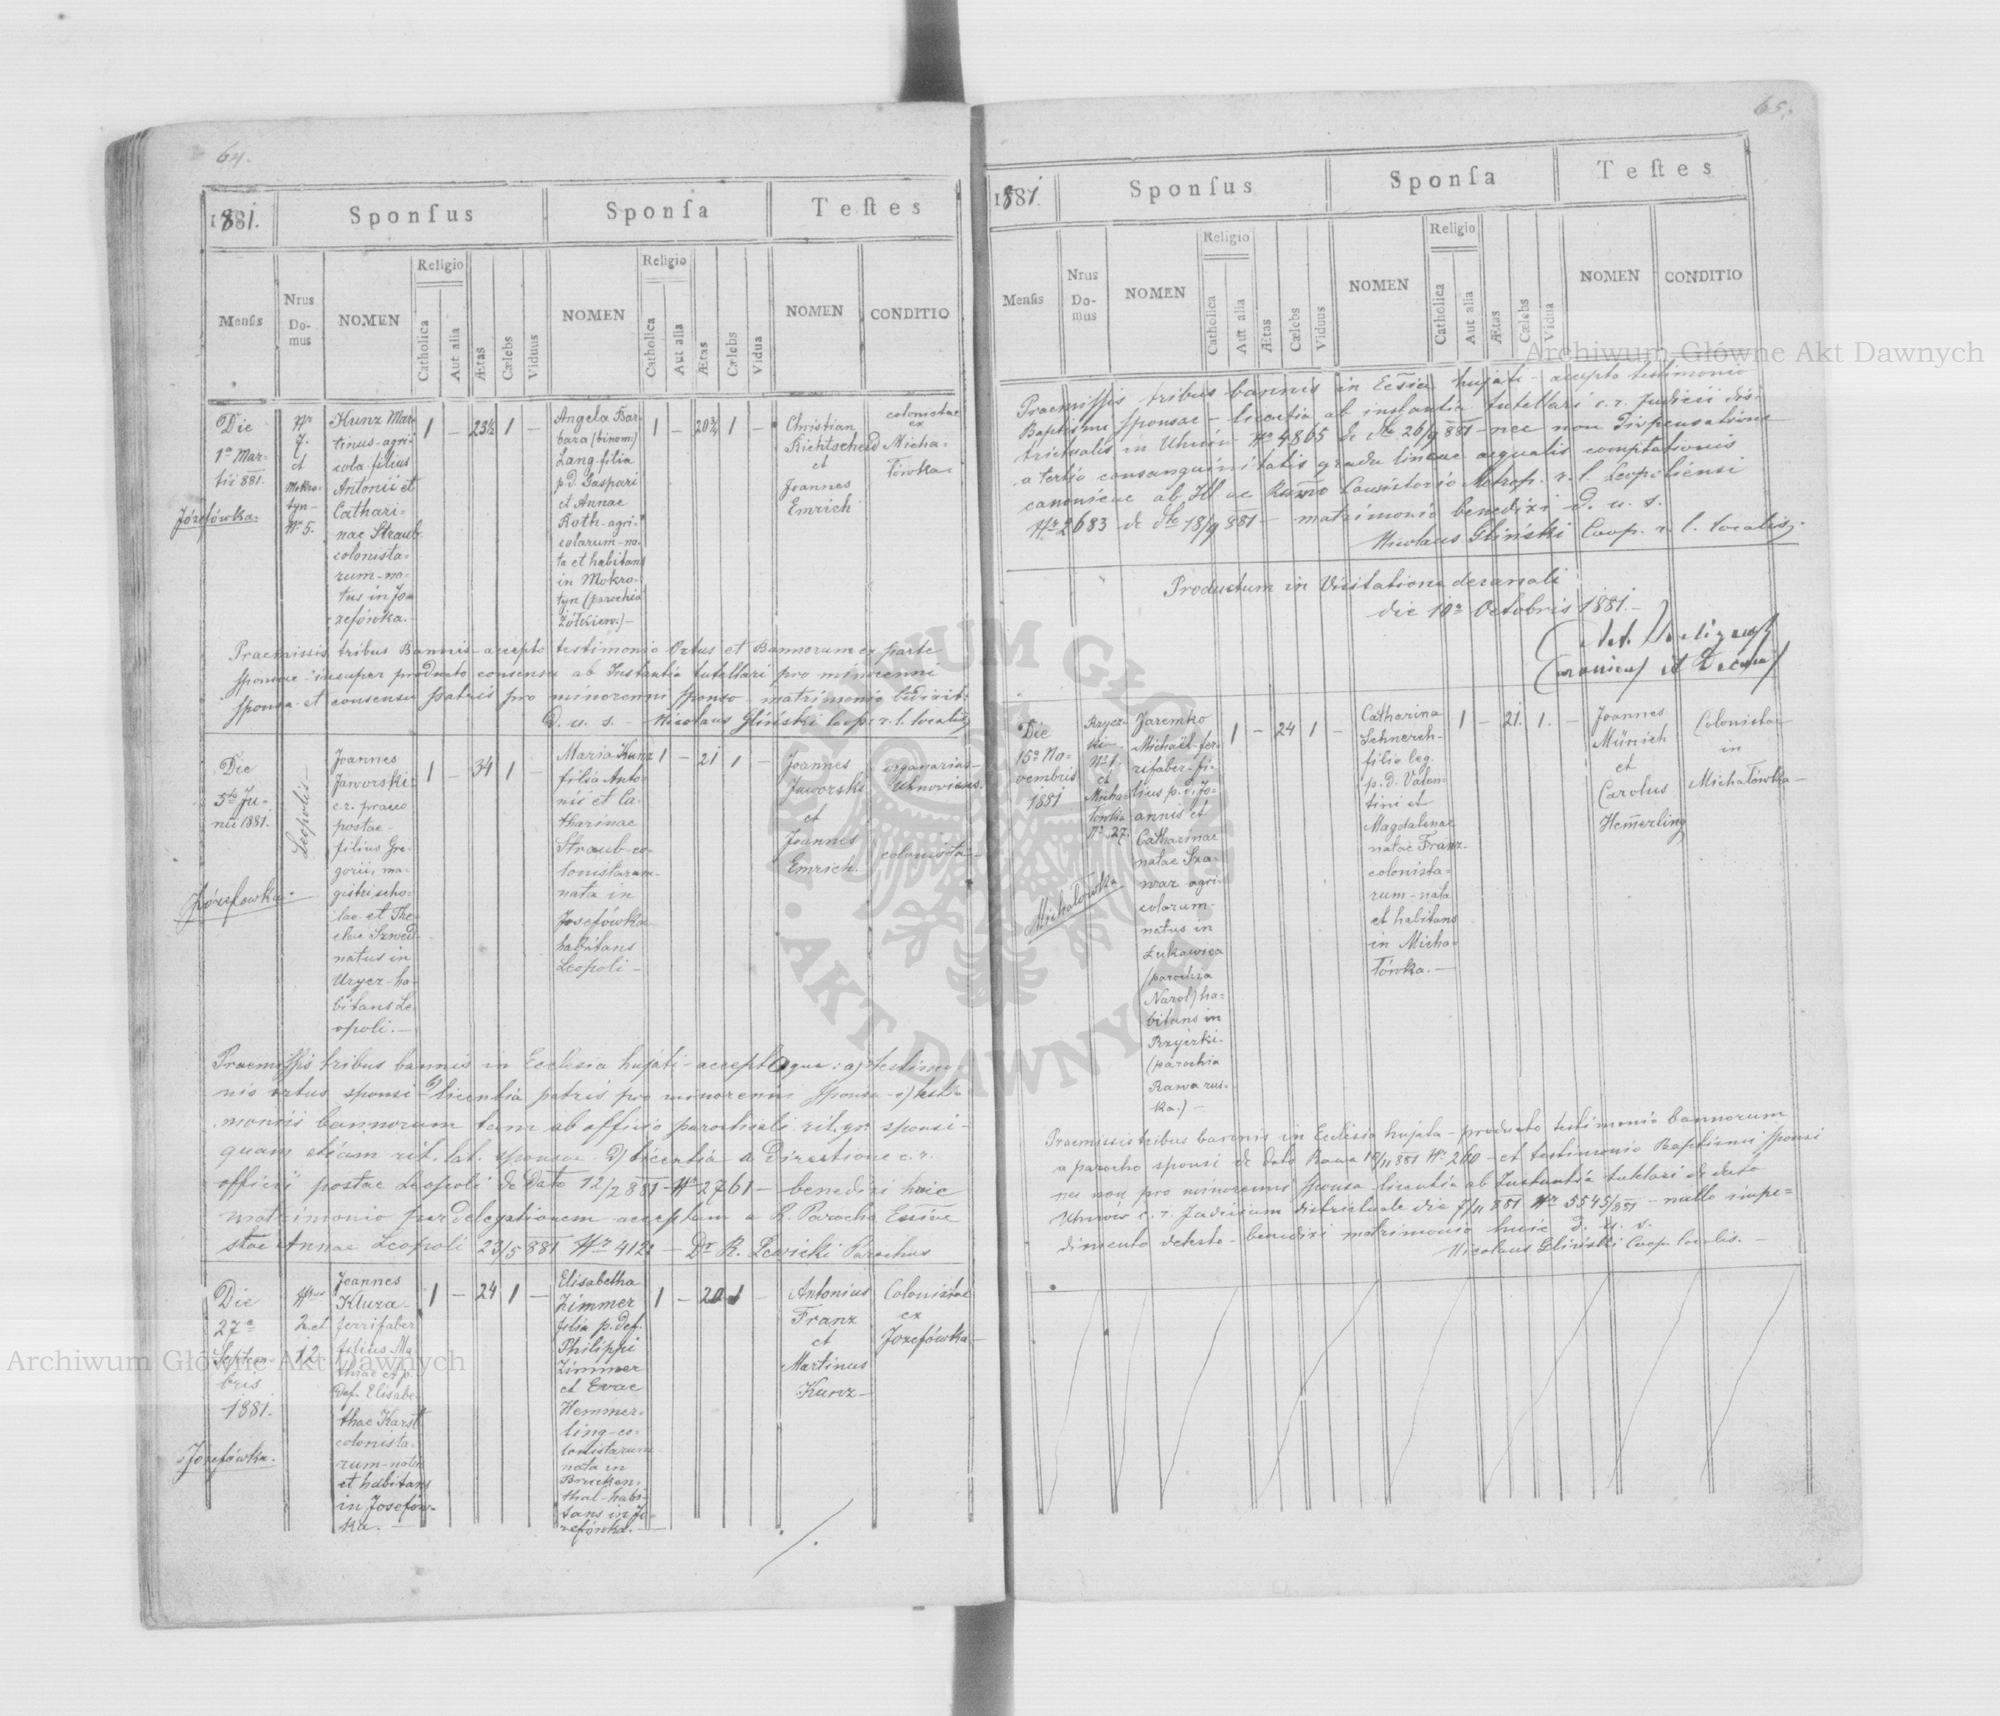 64.
1881.
Sponſus
Sponſa
Teſtes
Menſis
Nrus
Do-
mus
NOMEN
Religio
Catholica
Aut alia
Ætas
Cælebs
Viduus
NOMEN
Religio
Catholica
Aut alia
Ætas
Cælebs
Vidua
NOMEN
CONDITIO
Die
1ª Mar-
tii 881.
Józefówka.
Nr
7.
et
Mokro-
tyn
Nº 5.
Kunz Mar-
tinus-agri-
cola-filius
Antonii et
Cathari-
nae Straub
colonista-
rum-na-
tus in Jo-
zefówka.
1 — 23½ 1 —
Angela Bar-
bara (binom)
Lang-filia
p.d. Gaspari
et Annae
Roth-agri-
colarum-na-
ta et habitans
in Mokro-
tyn (parochia
Żółkiew.)—
1 — 20¾ 1 —
Christian
Richtscheid
et
Joannes
Emrich
colonistae
ex
Micha-
łówka
Praemissis tribus Bannis-accepto testimonio Ortus et Bannorum ex parte
sponsae-insuper producto consensu ab Instantia tutellari pro minorenni
sponsa-et consensu patris pro minorenni sponso-matrimonio bedixit
d. u. s. — Nicolaus Gliński Coop. r. l. localis
Die
5ta Ju-
nii 1881.
Józefowka-
Leopolis-
Joannes
Jaworski-
c.r. praeco
postae-
filius Gre-
gorii, ma-
gistri scho-
lae-et The-
clae Szwed-
natus in
Uryez-ha-
bitans Le-
opoli.—
1 — 34 1 —
Maria Kunz
filia Anto-
nii et Ca-
tharinae
Straub-co-
lonistarum-
nata in
Josefówka
habitans
Leopoli—
1 — 21 1 —
Joannes
Jaworski
et
Joannes
Emrich.
organarius-
Uhnoviens.
colonista-
Praemissis tribus bannis in Ecclesia hujati-acceptoque: a) testimo-
nio ortus sponsi-b) licentiâ patris pro minorenni sponsa-c) testi-
moniis bannorum tam ab officio parochiali rit. gr. sponsi-
quam etiam rit. lat. sponsae-d) licentiâ a Directione c. r.
officii postae Leopoli de Dato 12/2 881-Nr 2761-benedixi huic
matrimonio per delegationem acceptam a R. Parocho Ecsiae
stae Annae Leopoli 23/5 881 Nr 412:—Dr R. Lewicki Parochus
Die
27ª
Septem-
bris
1881.
Józefówka.
Nrus
2 et
12
Joannes
Kluza-
ferrifaber
filius Ma-
thiae et p.
def. Elisabe-
thae Karst
colonista-
rum-natus
et habitans
in Josefów-
ka.—
1 — 24 1 —
Elisabetha
Zimmer
filia p. def.
Philippi
Zimmer
et Evae
Hemmer-
ling-co-
lonistarum-
nata in
Brucken-
thal-habi-
tans in Jo-
zefówka.—
1 — 20 1 —
Antonius
Franz
et
Martinus
Kunz-
Colonistae
ex
Jozefówka-
65.
1881.
Sponſus
Sponſa
Teſtes
Menſis
Nrus
Do-
mus
NOMEN
Religio
Catholica
Aut alia
Ætas
Cælebs
Viduus
NOMEN
Religio
Catholica
Aut alia
Ætas
Cælebs
Vidua
NOMEN
CONDITIO
Praemissis tribus bannis in Ecsia hujati-accepto testimonio
Baptismi sponsae-licentia ab instantia tutellari c. r. Judicii dis-
trictualis in Uhnów Nº 4865 de dto 26/9 881-nec non dispensatione
a tertio consanguinitatis gradu lineae aequalis computationis
canonicae ab Ill ac Rmo Consistorio Metrop. r. l. Leopoliensi
Nº 2683 de dto 18/9 881-matrimonio benedixi d. u. s.
Nicolaus Gliński Coop. r. l. localis.
Productum in Visitatione decanali
die 10ª Octobris 1881.-
Canonicus et Decanus
Die
15ª No-
vembris
1881
Michałówka
Rzycz-
ki-
Nº 1
et
Micha-
łówka
Nº 27.
Jaremko
Michaël-fer-
rifaber-fi-
lius p. d. Jo-
annis et
Catharinae
natae Sza-
war-agri-
colarum-
natus in
Łukawica
(parochia
Narol) ha-
bitans in
Rzyczki-
(parochia
Rawa rus-
ka.)—
1 — 24 1 —
Catharina
Schnerch-
filia leg.
p. d. Valen-
tini et
Magdalenae
natae Franz-
colonista-
rum-nata
et habitans
in Micha-
łówka.—
1 — 21. 1. —
Joannes
Münich
et
Carolus
Hem̄erling
Colonistae
in
Michałówka—
Praemissis tribus bannis in Ecclesia hujata-producto testimonio bannorum
a parocho sponsi de dato Rawa 12/11 881 Nr 260-et testimonio Baptismi sponsi
nec non pro minorenni sponsa licentiâ ab Instantiâ tutelari de dato
Uhnów c. r. Judicium districtuale die 7/11 881 Nº 5545/881-nullo impe-
dimento detecto-benedixi matrimonio huic d. u. s.
Nicolaus Gliński Coop. localis.—
Archiwum Główne Akt Dawnych
Archiwum Główne Akt Dawnych
ARCHIWUM GŁÓWNE
• AKT DAWNYCH •